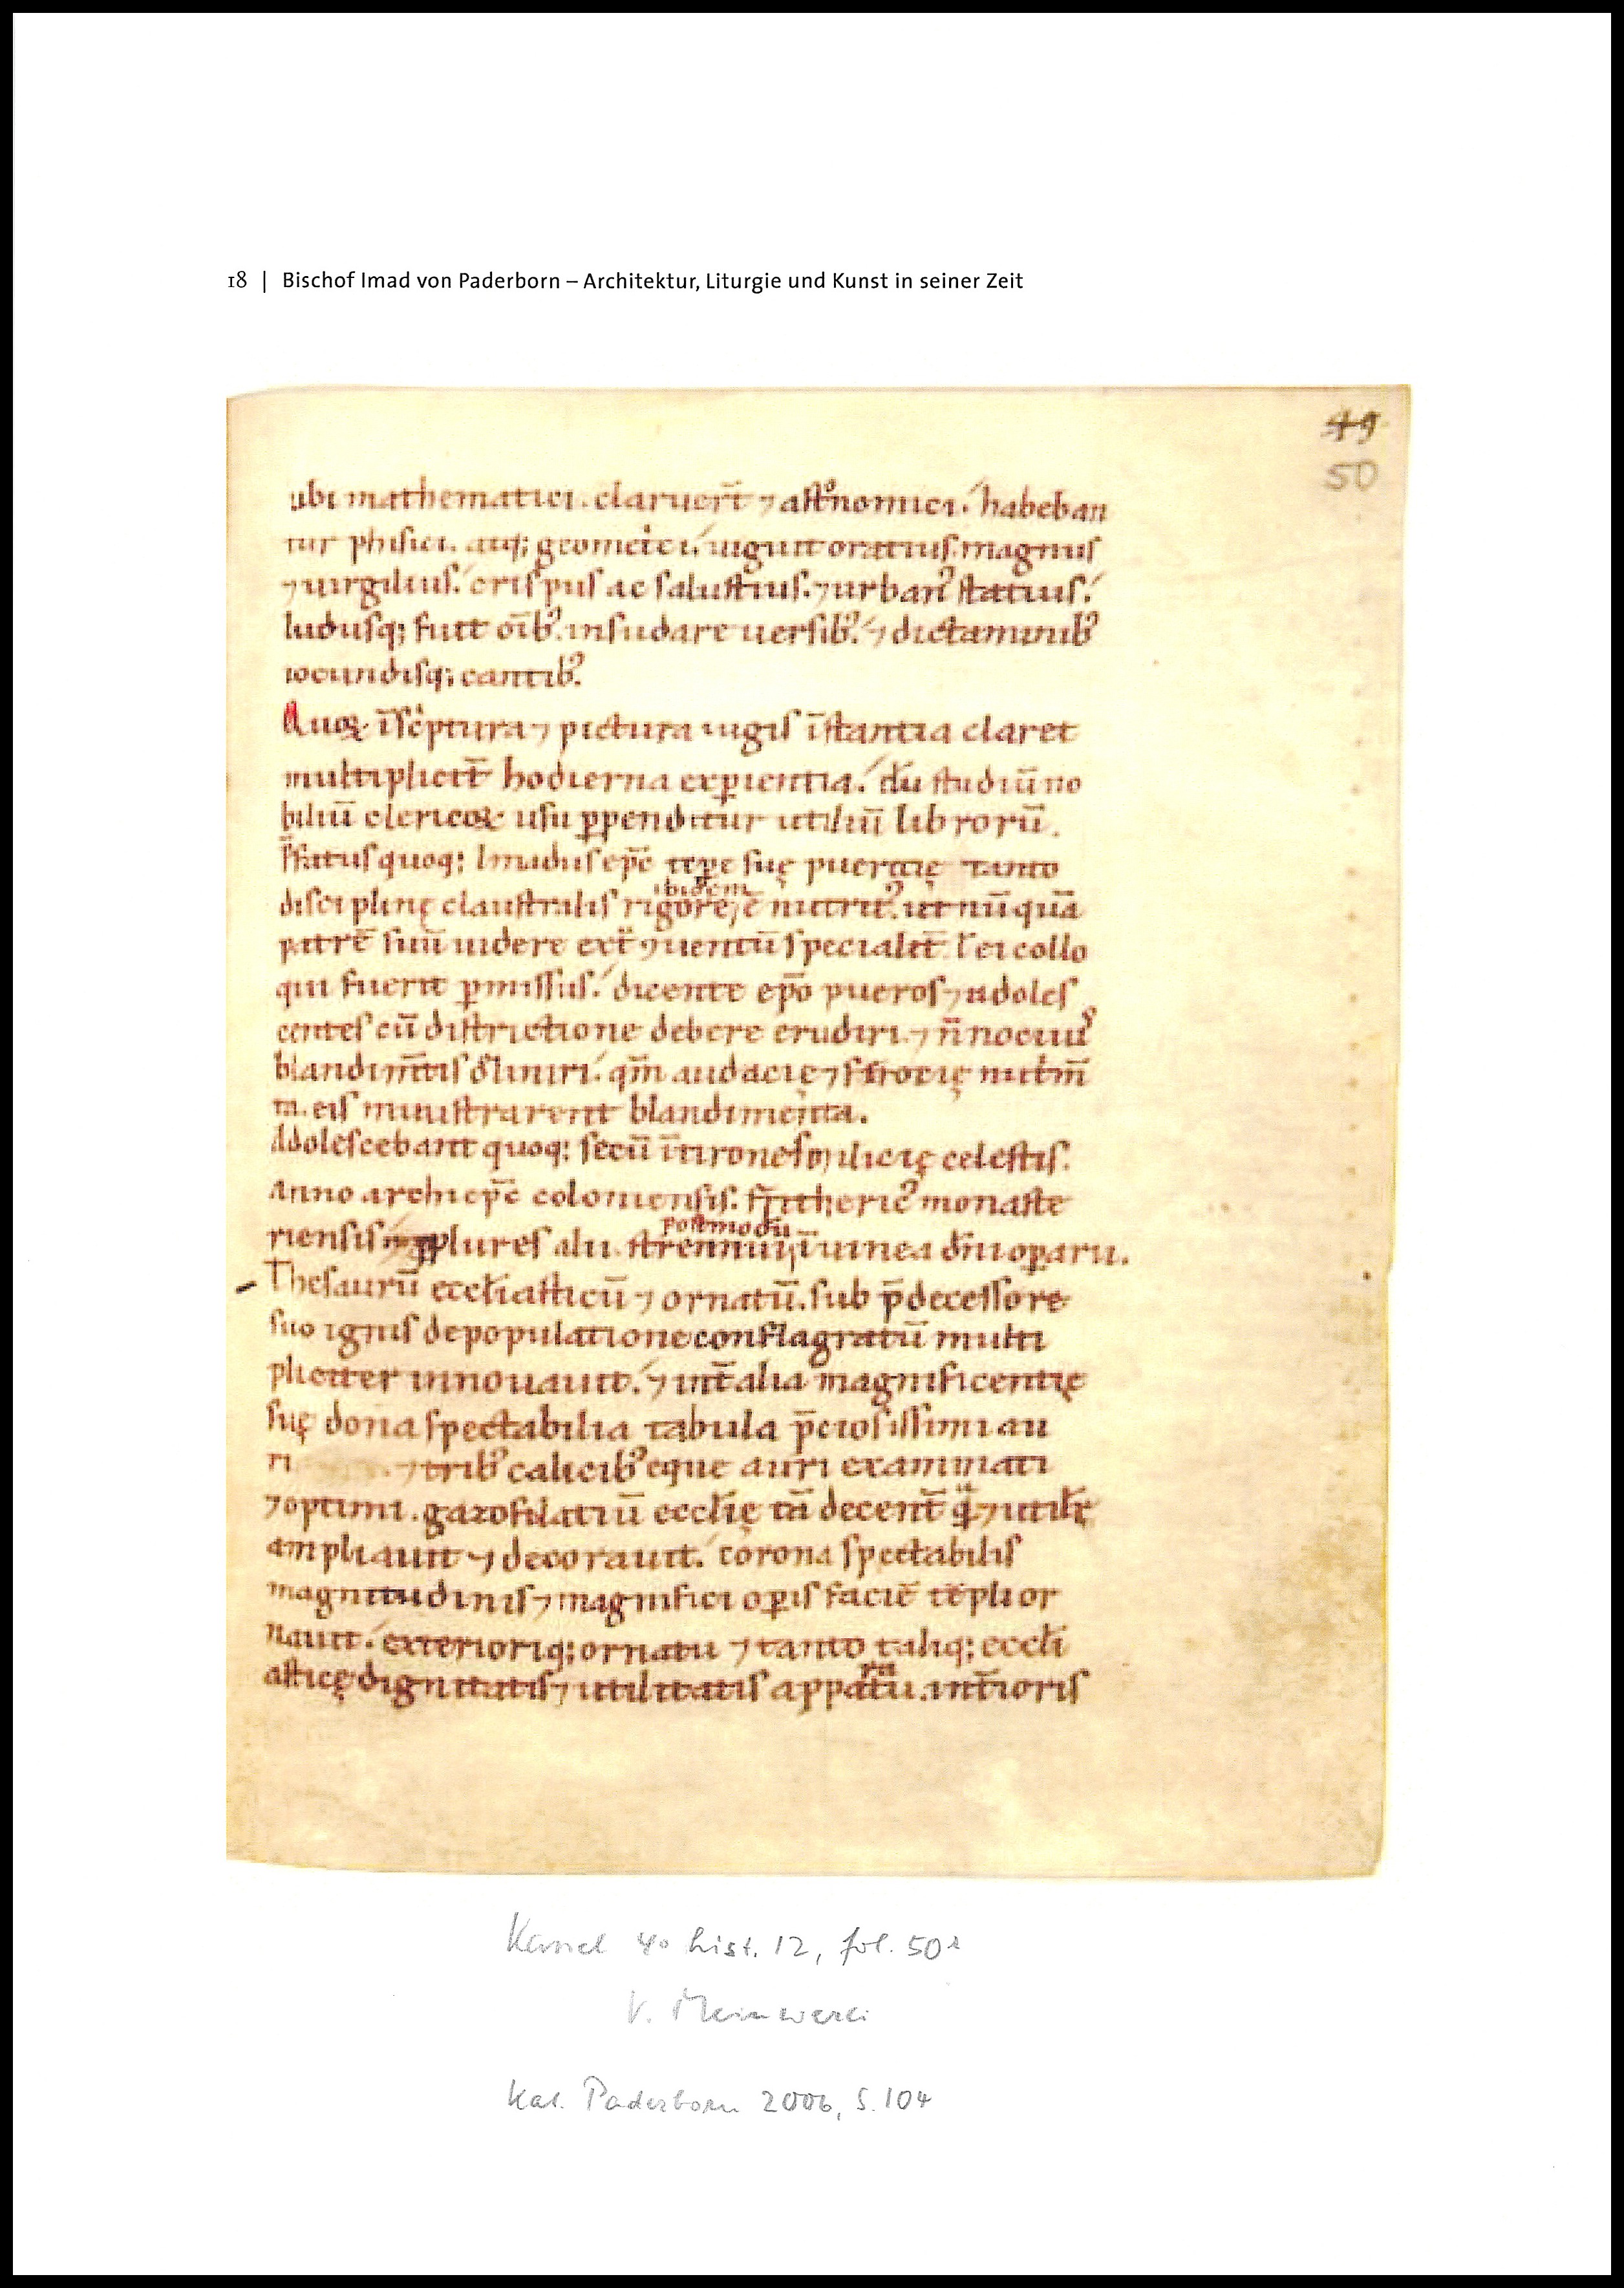 18 | Bischof Imad von Paderborn – Architektur, Liturgie und Kunst in seiner Zeit
49
50
ubi mathematici. claruer̄t ⁊ astͦnomici. habeban
tur phisici. atq; geometͥci. uiguit oratius. magnus
⁊ uirgilius. crispus ac salustius. ⁊ urbanꝰ statius.
ludusq; fuit oīb'. insudare uersib'. ⁊ dictaminib'
iocundisq; cantib'.
Quoꝝ ī scͥptura ⁊ pictura iugis īstantia claret
multiplicit̄ hodierna exꝑientia. dū studiū no
biliū clericoꝝ usu ꝑpenditur utiliū librorū.
p̄fatus quoq; Imadus ep̄c tēꝑe suę pueritię tanto
disciplinę claustralis rigore ibidem ē nutritꝰ. ut nūquā
patrē suū uidere ext̄ ꝯuentū specialit̄. ł ei collo
qui fuerit ꝑmissus. dicente ep̄o pueros ⁊ adoles
centes cū districtione debere erudiri. ⁊ n̄ nociuis
blandim̄tis deliniri. qm̄ audacię ⁊ ferocię nutrim̄
ta. eis ministrarent blandimenta.
Adolescebant quoq; secū ī tirones milicię celestis.
Anno archiep̄c coloniensis. frithericꝰ monaste
riensis plures alii. strennui postmodū ī uinea dn̄i oꝑarii.
Thesaurū eccl̄iasticū ⁊ ornatū. sub p̄decessore
suo ignis depopulatione conflagratū multi
pliciter innouauit. ⁊ int̄ alia magnificentię
suę dona spectabilia tabula p̄ciosissimi au
ri ⁊ trib' calicib' eque auri examinati
⁊ optimi. gazofilatiū eccl̄ię tā decent̄ qͣ ⁊ utilit̄
ampliauit ⁊ decorauit. corona spectabilis
magnitudinis ⁊ magnifici oꝑis faciē tēpli or
nauit. exterioriq; ornatu ⁊ tanto taliq; eccl̄i
asticę dignitatis ⁊ utilitatis apparatu. int̄ioris
Kassel 4° hist. 12, fol. 50r
V. Meinwerci
Kat. Paderborn 2006, S. 104